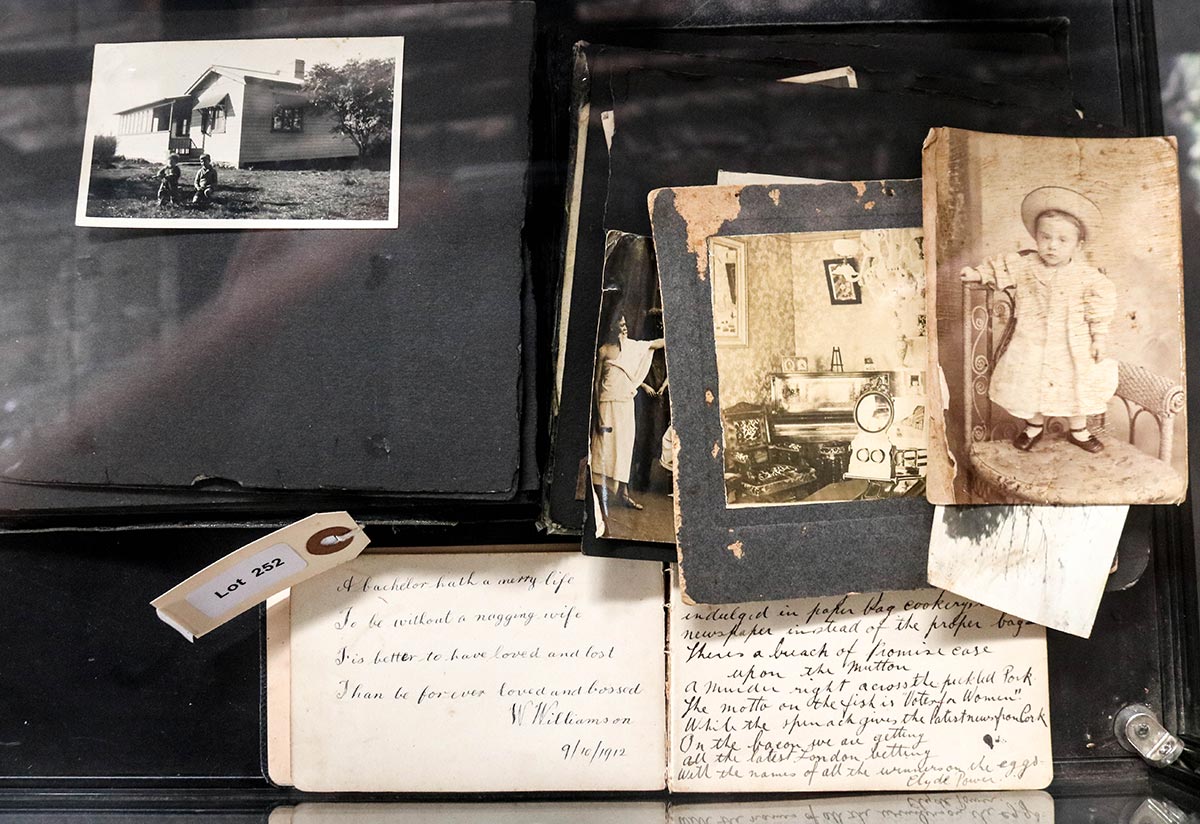 Lot 252
A bachelor hath a merry life
To be without a nagging wife
T'is better to have loved and lost
Than be forever loved and bossed
W Williamson
9/10/1912
indulged in paper bag cookery
newspaper instead of the proper bag
Theres a breach of Promise case
upon the Mutton
A Murder right across the pickled Pork
The motto on the fish is "Votes for Women".
While the spinach gives the latest news from Cork
On the bacon we are getting
all the latest London betting
With the names of all the winners on the eggs.
Clyde Power.